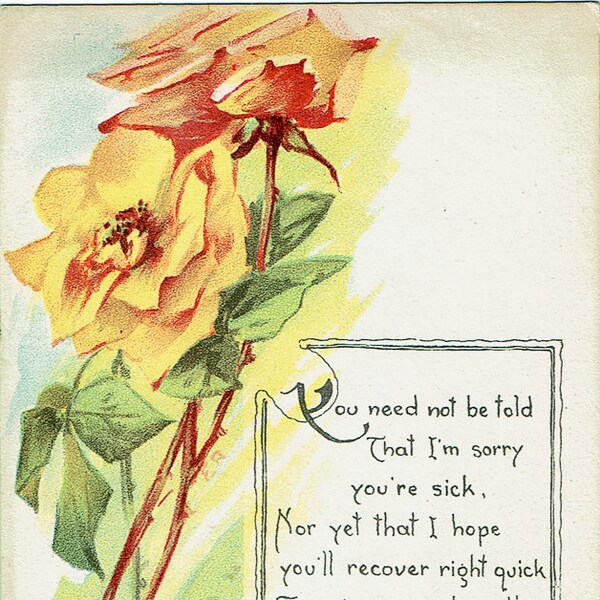 You need not be told
That I'm sorry
you're sick,
Nor yet that I hope
you'll recover right quick